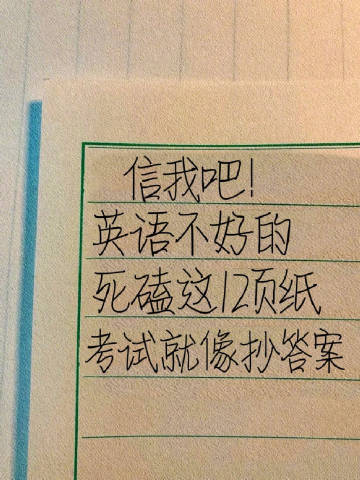 信我吧!
英语不好的
死磕这12页纸
考试就像抄答案